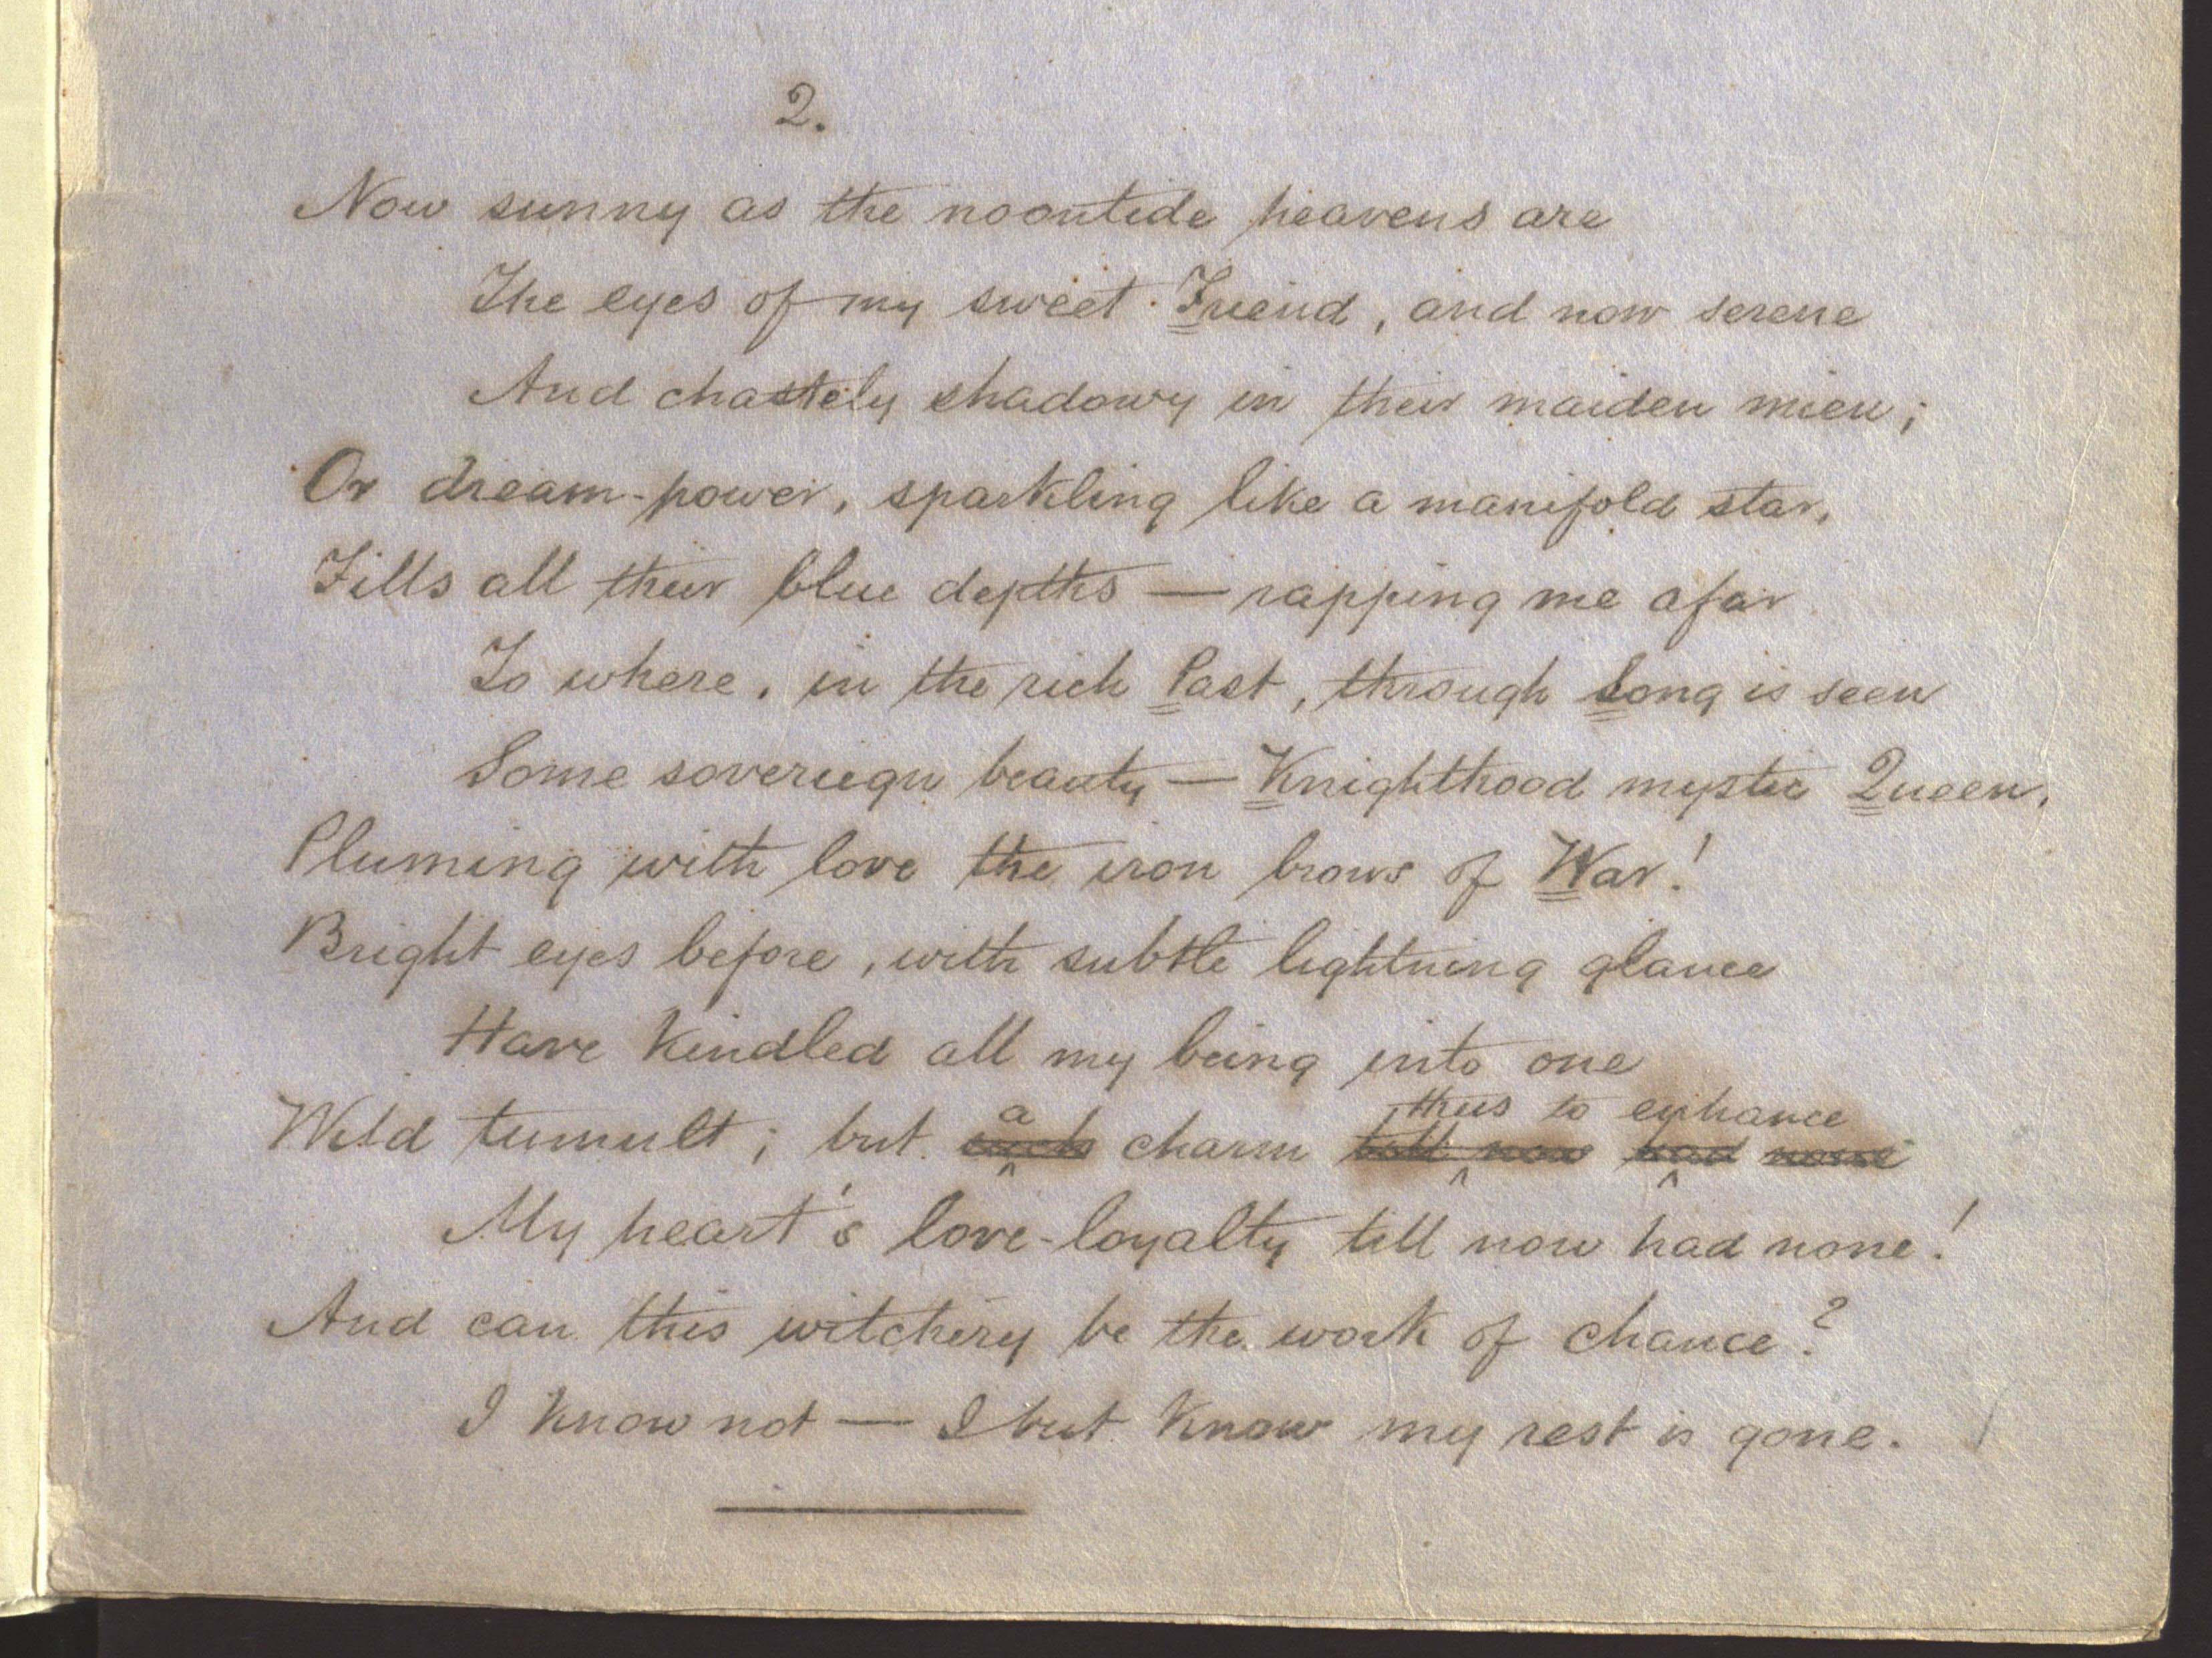 2.
Now sunny as the noontide heavens are
The eyes of my sweet Friend, and now serene
And chastely shadowy in their maiden mien;
Or dream-power, sparkling like a manifold star,
Fills all their blue depths — rapping me afar
To where, in the rich Past, through Song is seen
Some sovereign beauty — Knighthood mystic Queen,
Pluming with love the iron brows of War!
Bright eyes before, with subtle lightning glance
Have Kindled all my being into one
thus to enhance
Wild tumult; but such a charm till now had none
My heart's love-loyalty till now had none!
And can this witchery be the work of chance?
I Know not — I but Know my rest is gone.